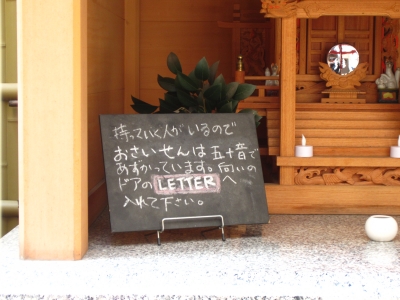 持っていく人がいるので
おさいせんは五十音で
あずかっています。向いの
ドアのLETTERへ
入れて下さい。